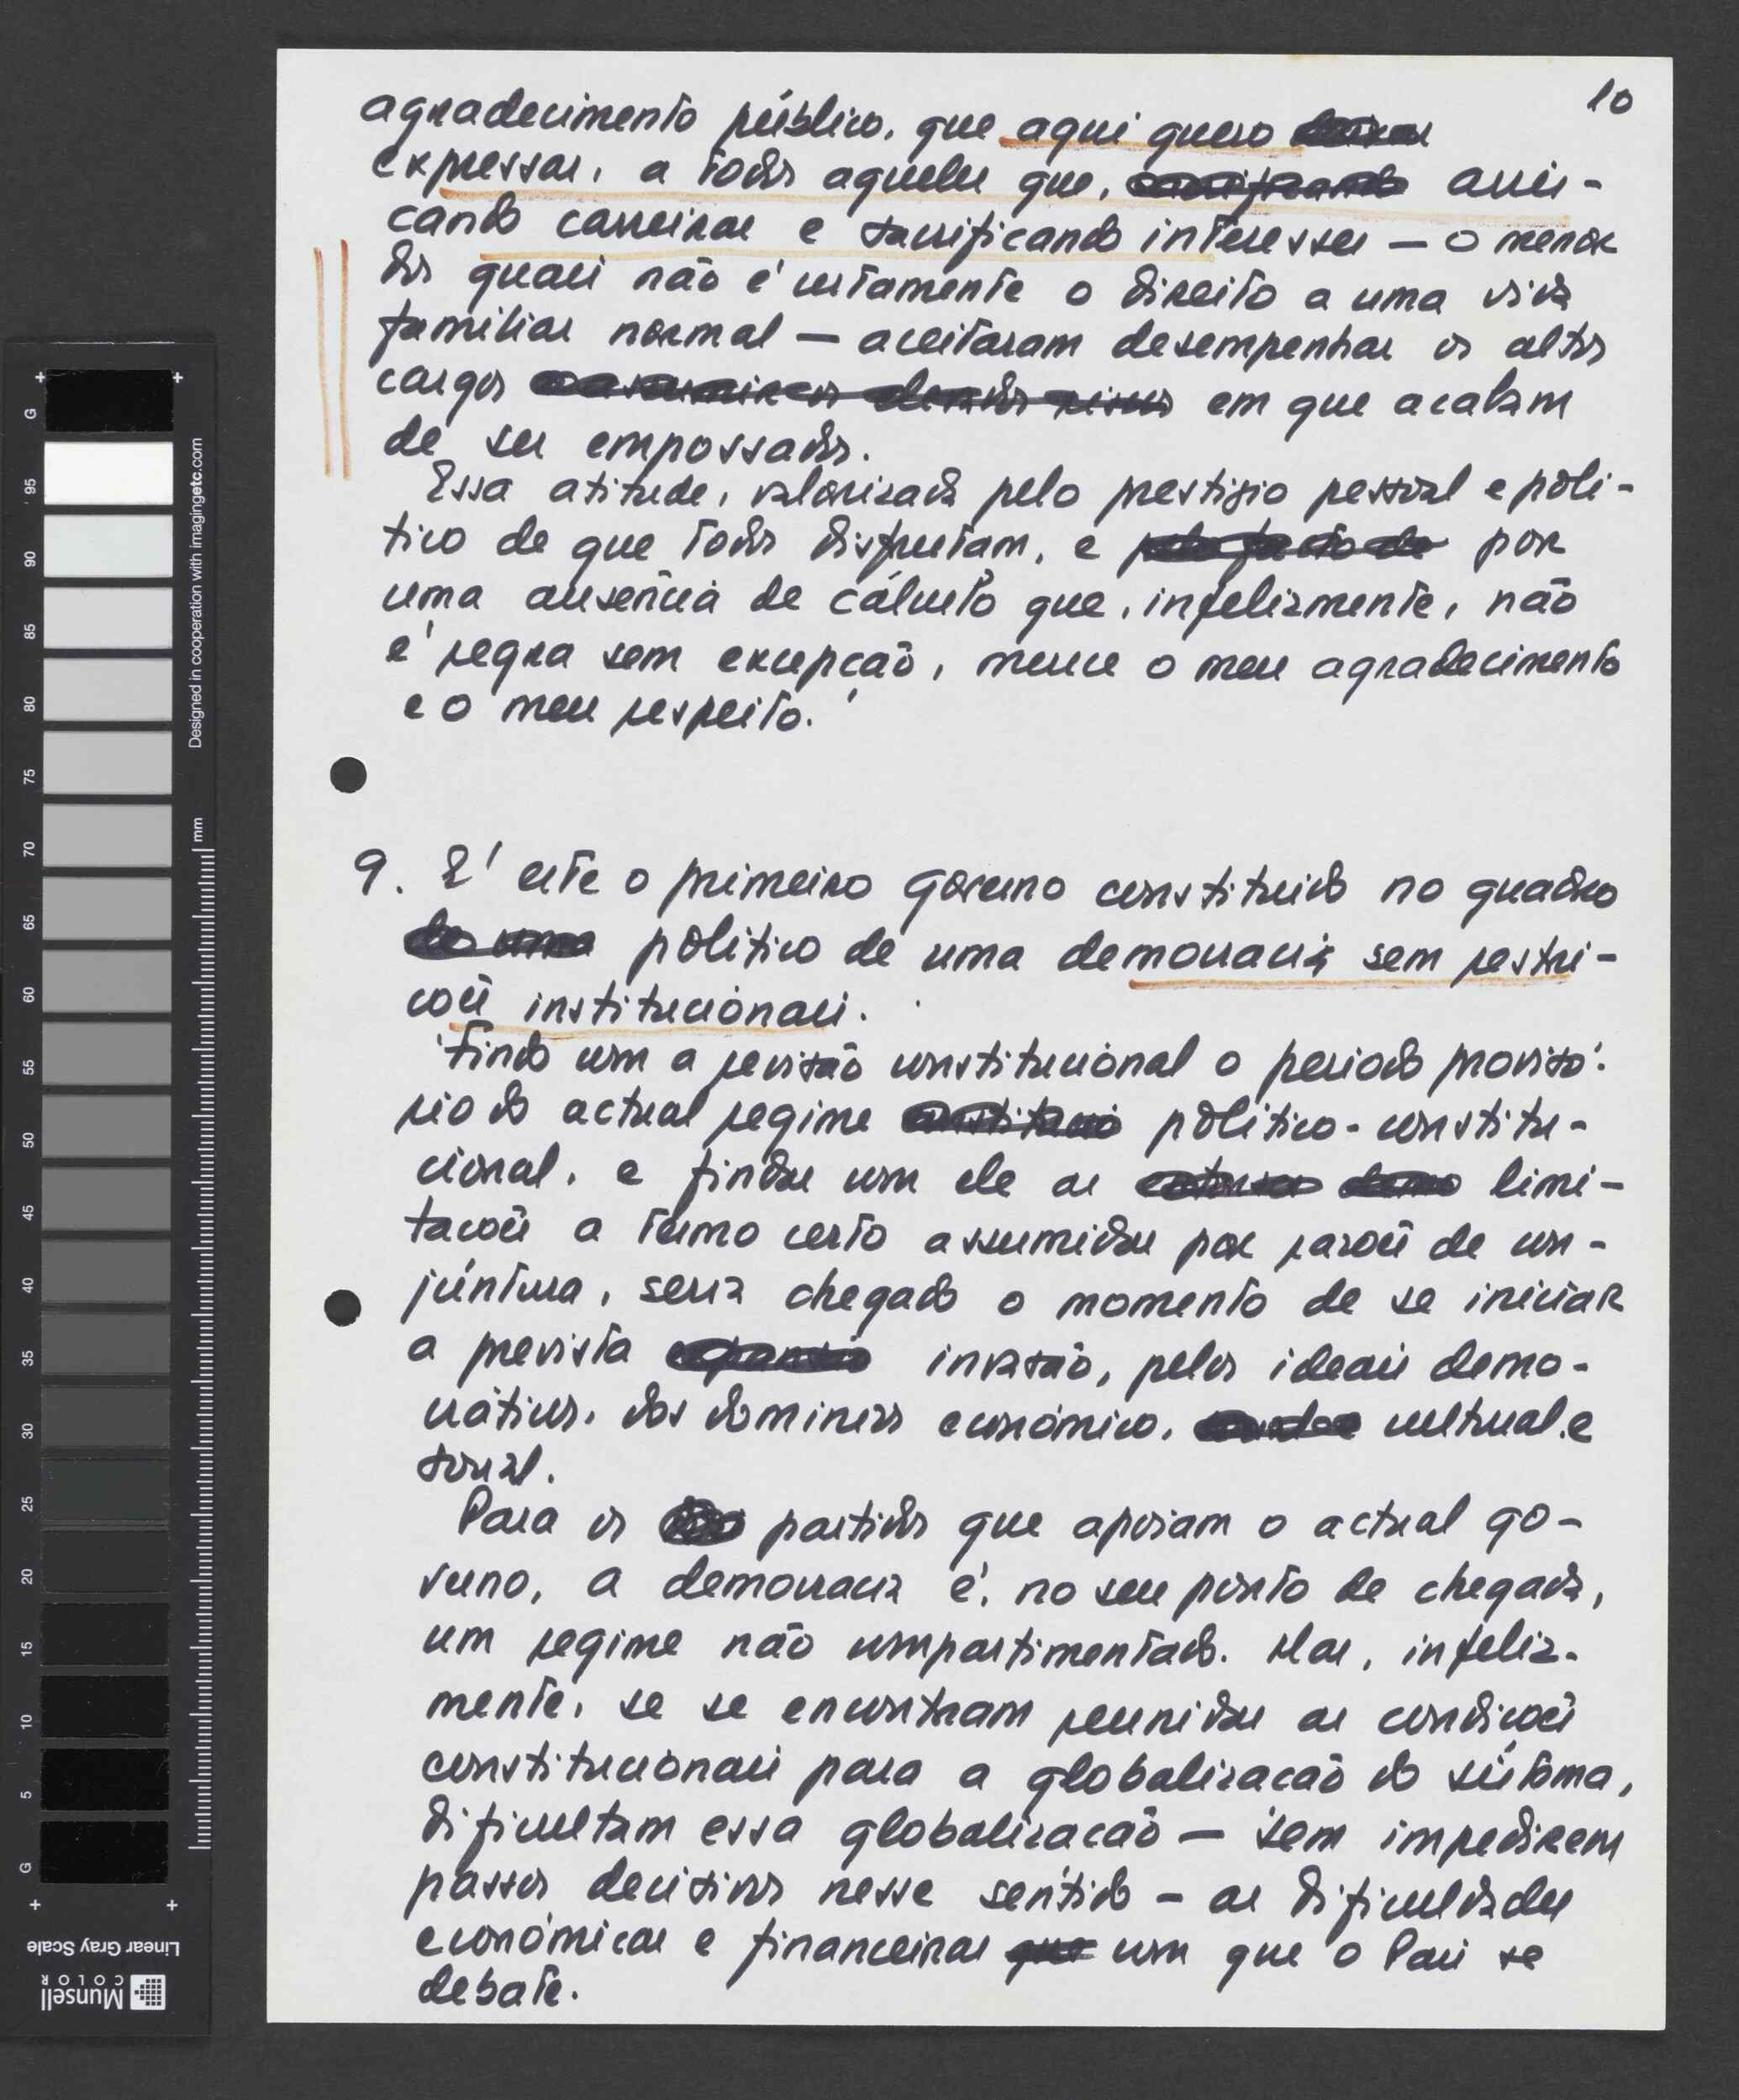 10
agradecimento público, que aqui quero
expressar, a todos aqueles que, sacrificando arris-
cando carreiras e sacrificando interesses — o menor
dos quais não é certamente o direito a uma vida
familiar normal — aceitaram desempenhar os altos
cargos em que acabam
de ser empossados.
Essa atitude, valorizada pelo prestigio pessoal e poli-
tico de que todos disfrutam, e pelo facto de por
uma ausência de cálculo que, infelizmente, não
é regra sem excepção, merece o meu agradecimento
e o meu respeito.
9. É este o primeiro governo constituido no quadro
de uma politico de uma democracia sem restri-
ções institucionais.
Findo com a revisão constitucional o periodo provisó-
rio do actual regime constitucio politico-constitu-
cional, e findas com ele as limi-
tações a termo certo assumidas por razões de con-
juntura, seria chegado o momento de se iniciar
a prevista expansão invasão, pelos ideais demo-
cráticos, dos dominios económico, cultural e
social.
Para os partidos que apoiam o actual go-
verno, a democracia é, no seu ponto de chegada,
um regime não compartimentado. Mas, infeliz-
mente, se se encontram reunidas as condições
constitucionais para a globalização do sistema,
dificultam essa globalização — sem impedirem
passos decisivos nesse sentido — as dificuldades
económicas e financeiras que com que o Pais se
debate.
Designed in cooperation with imagingetc.com
mm
G 95 90 85 80 75 70 65 60 55 50 45 40 35 30 25 20 15 10 5 G
Linear Gray Scale
Munsell
COLOR